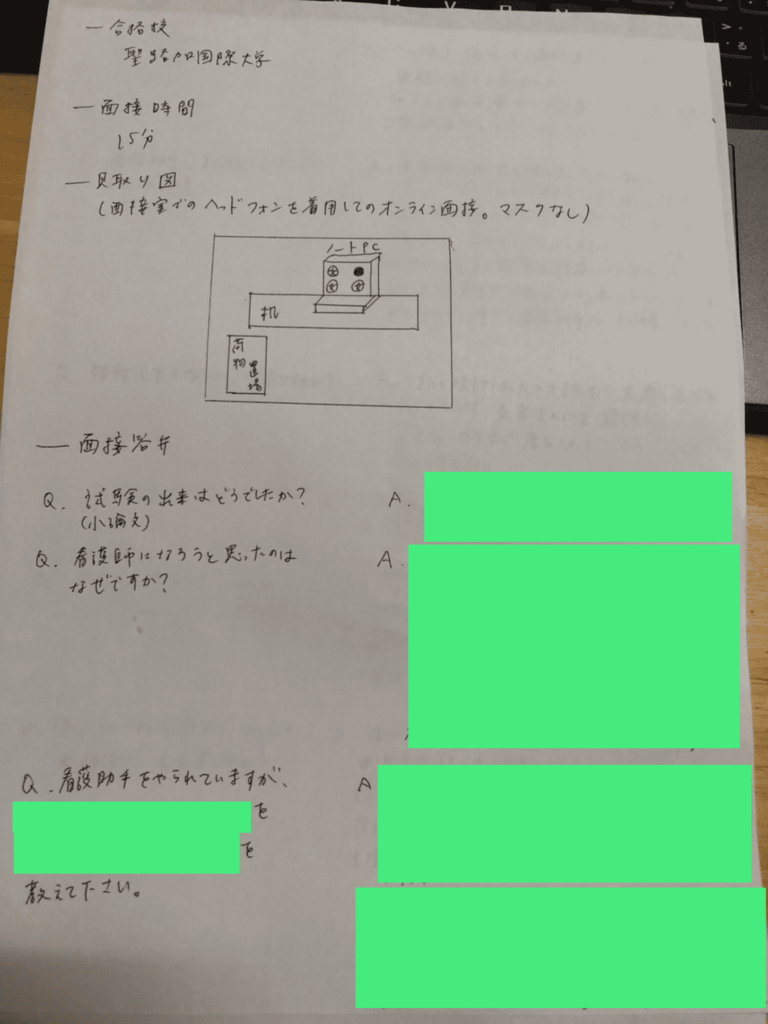 ― 合格校
聖路加国際大学
― 面接時間
15分
― 見取り図
(面接室でのヘッドフォンを着用してのオンライン面接。マスクなし)
ノートPC
机
荷物置場
― 面接答弁
Q. 試験の出来はどうでしたか? A.
(小論文)
Q. 看護師になろうと思ったのは A.
なぜですか?
Q. 看護助手をやられていますが、 A
を
を
教えて下さい。